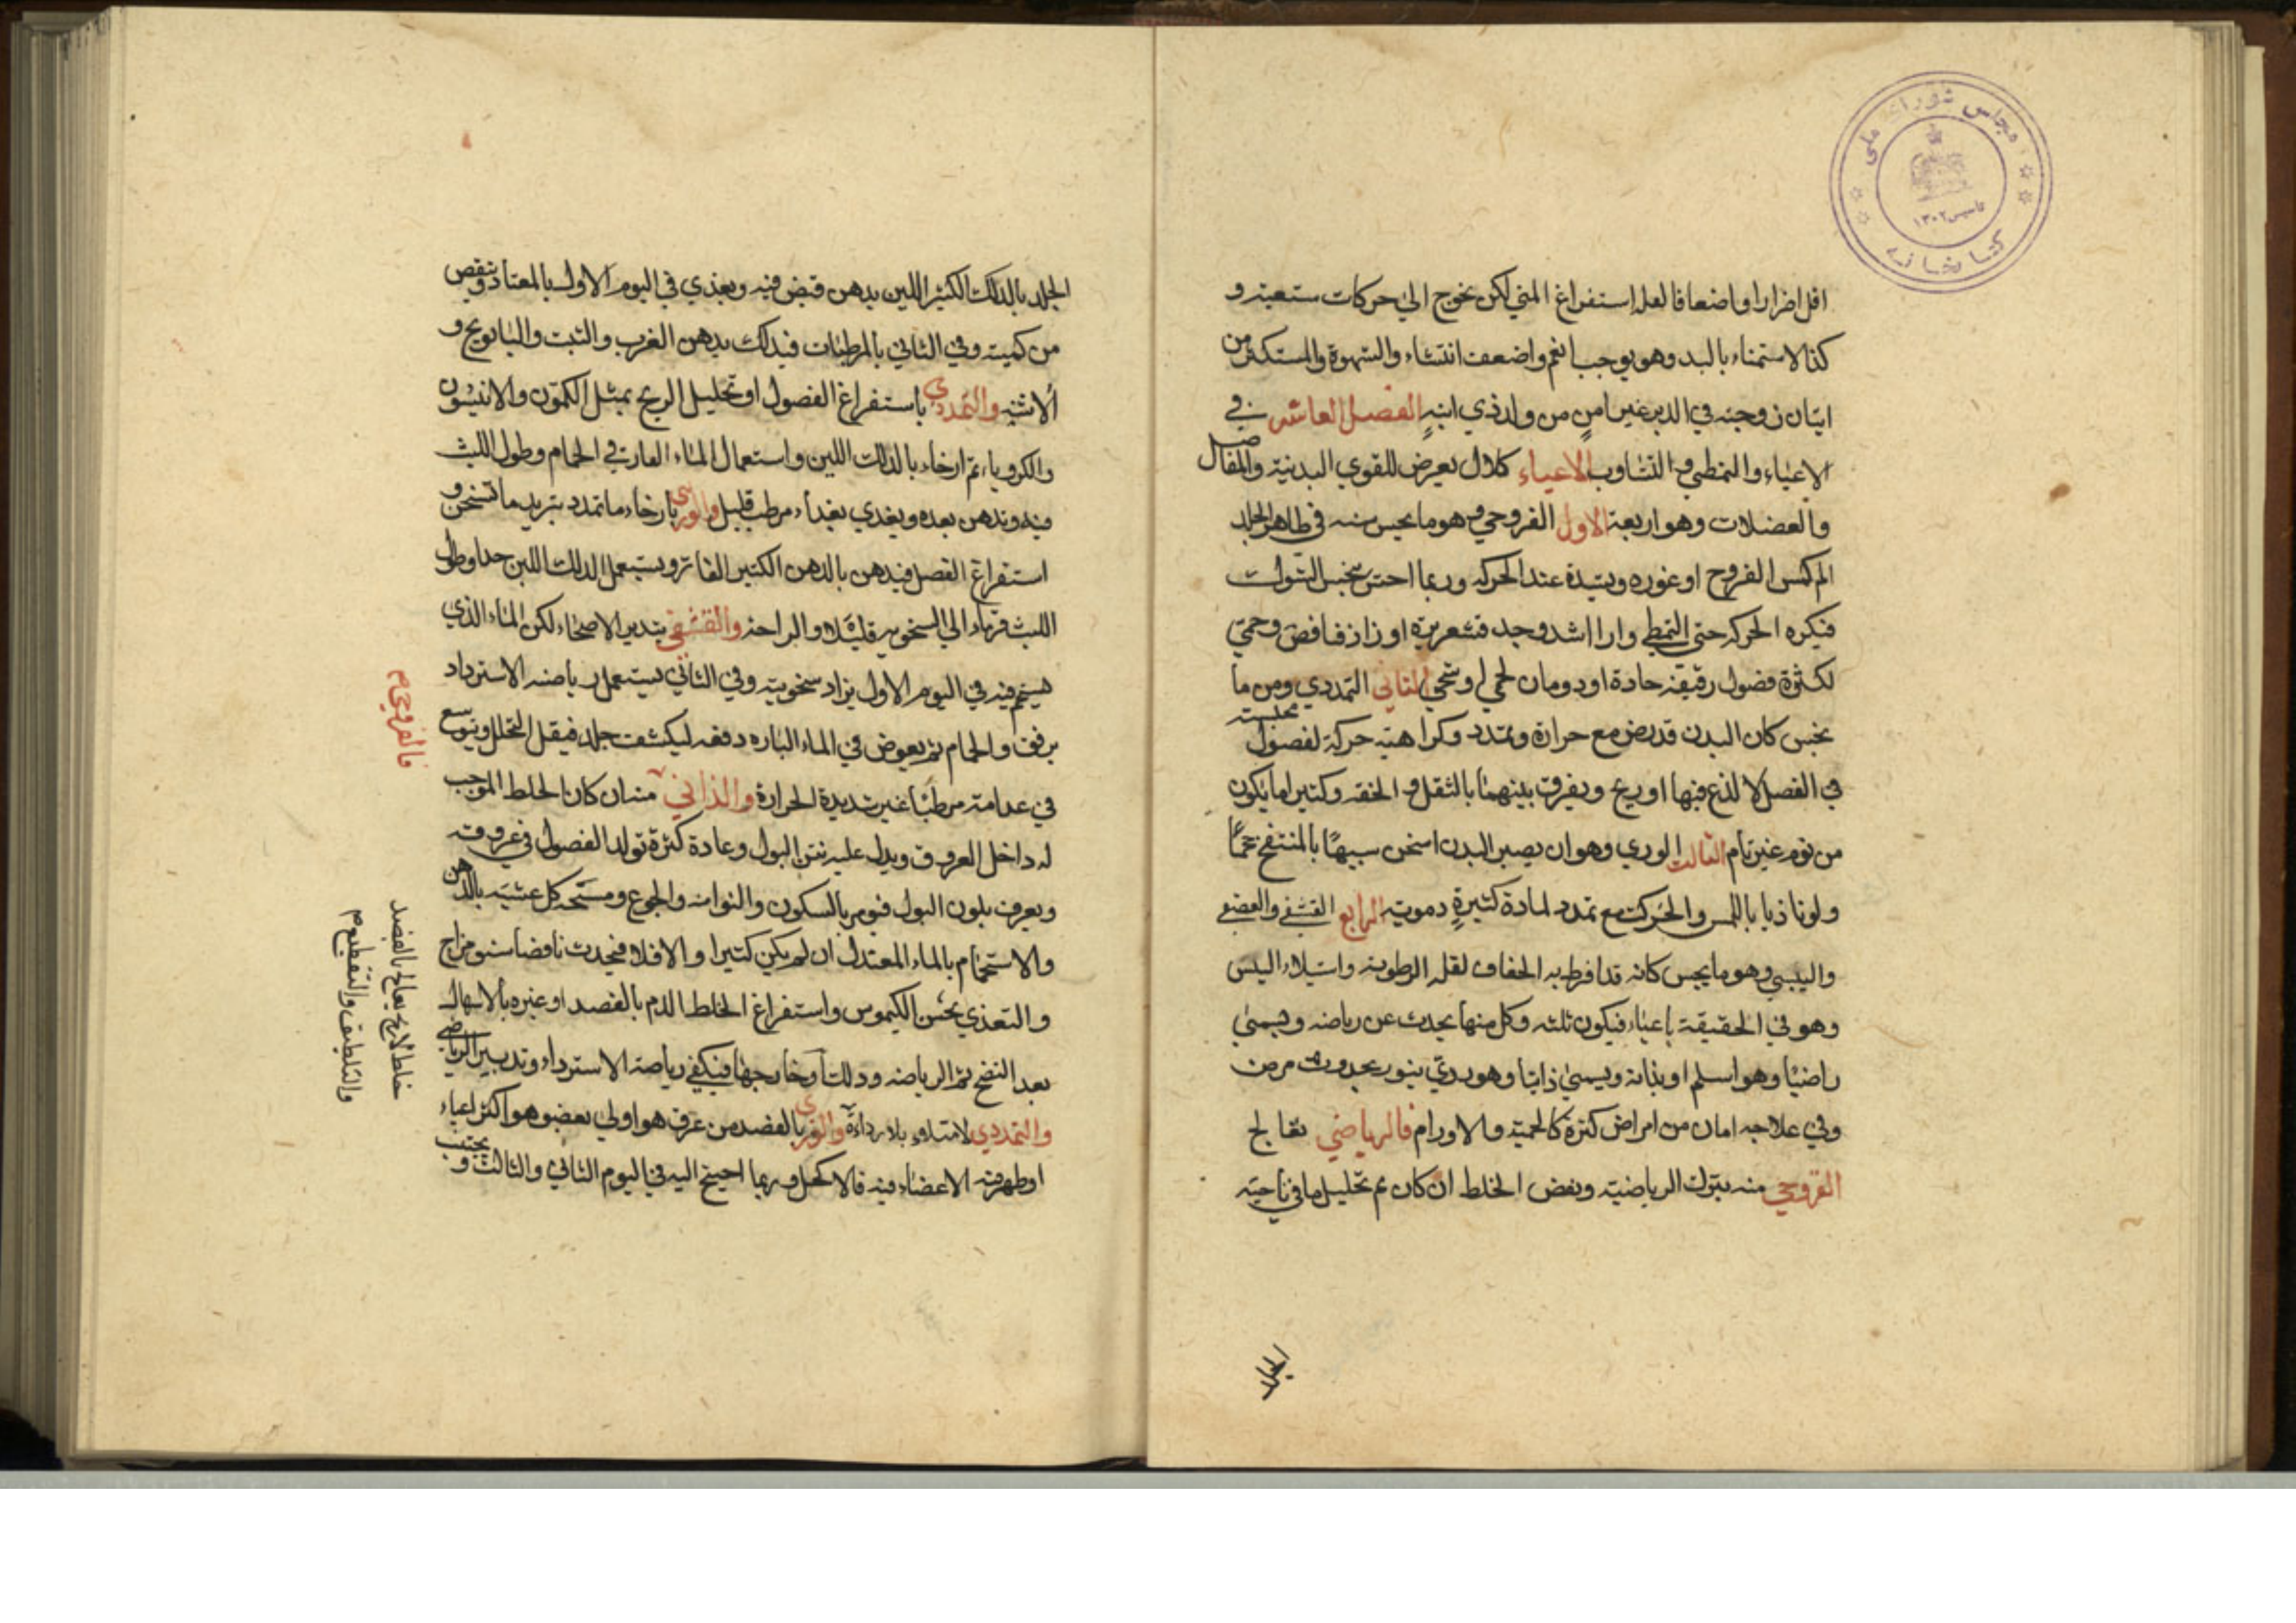 مجلس شورای ملی
تأسیس ۱۳۰۲
کتابخانه
اقل اضرارا واضعافا لعله استفراغ المنی لکن یحوج الی حرکات ستعبته و
کذا الاستمناء بالید وهو یوجب الغم واضعف انتشاء والشهوة والمستکثر من
اتیان زوجته فی الدبر غیر امن من ولد ذی ابنه الفصل العاشر فی
الاعیاء والتمطی والتثاوب الاعیاء کلال یعرض للقوی البدنیة والمفاصل
والعضلات وهو اربعة الاول القروحی وهو ما یحس منه فی ظاهر الجلد
الم کمس القروح او غوره ویشده عند الحرکه وربما احس بنخس الشوک
فیکره الحرکه حتی التمطی واذا اشد وجد قشعریرة او زاد فنافض وحمی
لکثرة فضول رقیقة حادة او ذوبان لحمی او شحمی الثانی التمددی وهو ما
یحس کان البدن قد رض مع حرارة وتمدد وکراهیته حرکة لفصول محتبسته
فی الفصل لا لذع فیها او ریح ویفرق بینهما بالثقل والخفه وکثیرا ما یکون
من نوم غیر تام الثالث الوری وهو ان یصیر البدن اسخن شبیها بالمنتفخ حجما
ولونا ذیا باللمس والحرکت مع تمدد لمادة کثیرة دمویته الرابع القشفی والقضفی
والیبسی وهو ما یحس کانه قد افرط به الجفاف لقله الرطوبة واستیلاء الیبس
وهو فی الحقیقة باعیاء فیکون ثلثه وکل منها یحدث عن ریاضه ویسمی
راضیا وهو اسلم او بذاته ویسمی ذاتیا وهو ردی ینور بحدوث مرض
وفی علاجه امان من امراض کثرة کالحمیة والاورام فالریاضی تعالج
القروحی منه بترک الریاضیته ونفض الخلط ان کان ثم تحلیل ما فی ناحیته
الجلد
الجلد بالدلک الکثیر اللین بدهن قبض فیه ویغذی فی الیوم الاول بالمعتاد وینقص
من کمیته وفی الثانی بالمرطبات فیدلک بدهن الغرب والشبت والبابونج و
الاشنه والتمددی باستفراغ الفصول او تحلیل الریح بمثل الکمون والانیسون
والکرویاء ثم ارخاء بالدلک اللین واستعمال الماء الفاتر فی الحمام وطول اللبث
فیه وتدهن بعده ویغذی بغذاء مرطب قلیل والوری بارخاء ما تمدد تبرید ما تسخن و
استفراغ الفصل فیدهن بالدهن الکثیر الفاتر ویستعمل الدلک اللین جدا وطول
اللبث فی ماء الی السخونه قلیلا والراحة والقشفی بتدبیر الاصحاء لکن الماء الذی
یستحم فیه فی الیوم الاول یزاد سخونته وفی الثانی یستعمل ریاضه الاسترداد
برفق والحمام ثم یعوض فی الماء البارد دفعه لیکثف جلده فیقل التحلل ویوسع
فی عدامته مرطبا غیر شدیدة الحرارة والذاتی منه ان کان الخلط الموجب
له داخل العروق ویدل علیه نتن البول وعادة کثرة تولد الفصول فی عروقه
ویعرف بلون البول فنومر بالسکون والنوانه والجوع ومسحه کل عشیه بالدهن
والاستحمام بالماء المعتدل ان لم یکن کثیرا والا فلا فیحدث نافضا سنو مزاج
والتغذی بحسن الکیموس واستفراغ الخلط الدم بالفصد او غیره بالاسهال
بعد النضج ثم الریاضه ودلک او خارجها فیکفی ریاضة الاسترداد وتدبیر الریاضی
والتمددی لامتلاء بلا رداءة والوری بالفصد من عرق هو اولی بعضو هو اکثر اعیاء
او طهر فیه الاعضاء فیه فالاکحل وربما احیج الیه فی الیوم الثانی والثالث و یجتنب
فالقروحی م
خلطه لازج یعالج بالفصد
والتلطیف والتقطیع م